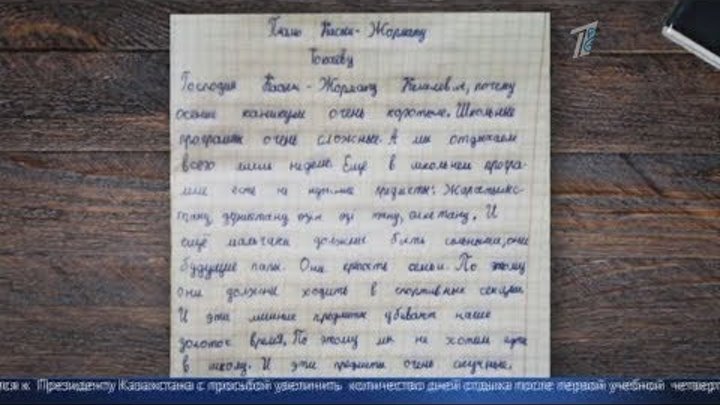 Писмо Касым-Жормарту
Токаеву
Господин Касым-Жормарт Кемелевич, почему
осение каникулы очень короткие. Школьные
программы очень сложные. А мы отдыхаем
всего лишь неделю. Ещё в школьной програ-
мме есть не нужные предметы:
тану, өзін өзі тану,
ещё мальчики должны быть сильными, они
будущие папы. Они крепость семьи. По этому
они должны ходить в спортивные секции.
И эти лишние предметы убивают наше
золотое время. По этому мы не хотим идти
в школу. И эти предметы очень скучные.
лся к Президенту Казахстана с просьбой увеличить количество дней отдыха после первой учебной четверт